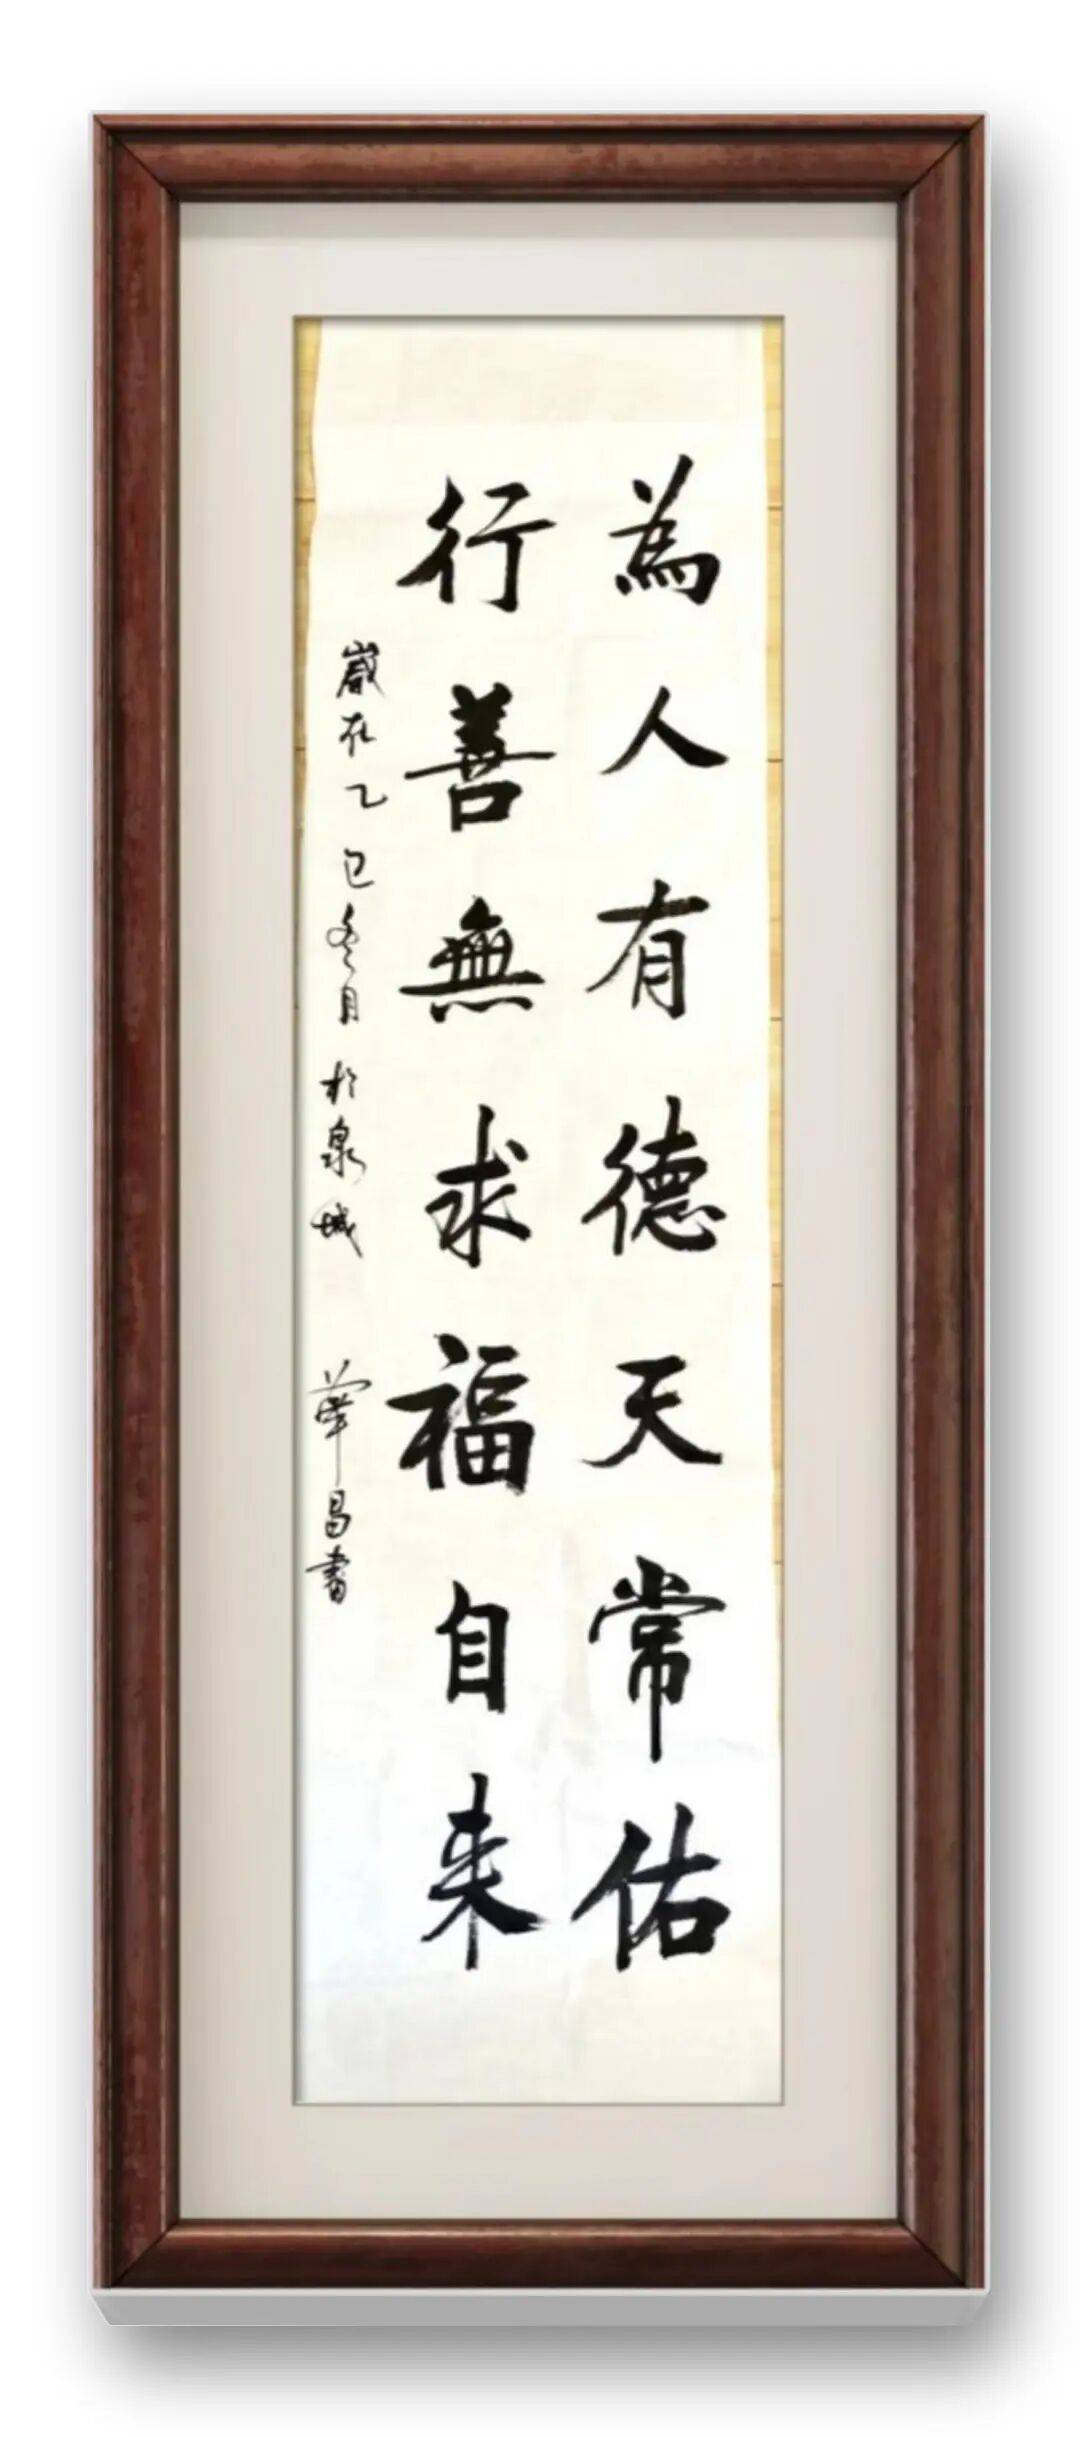 為人有德天常佑
行善無求福自来
歲在乙巳冬月於泉城 華昌書